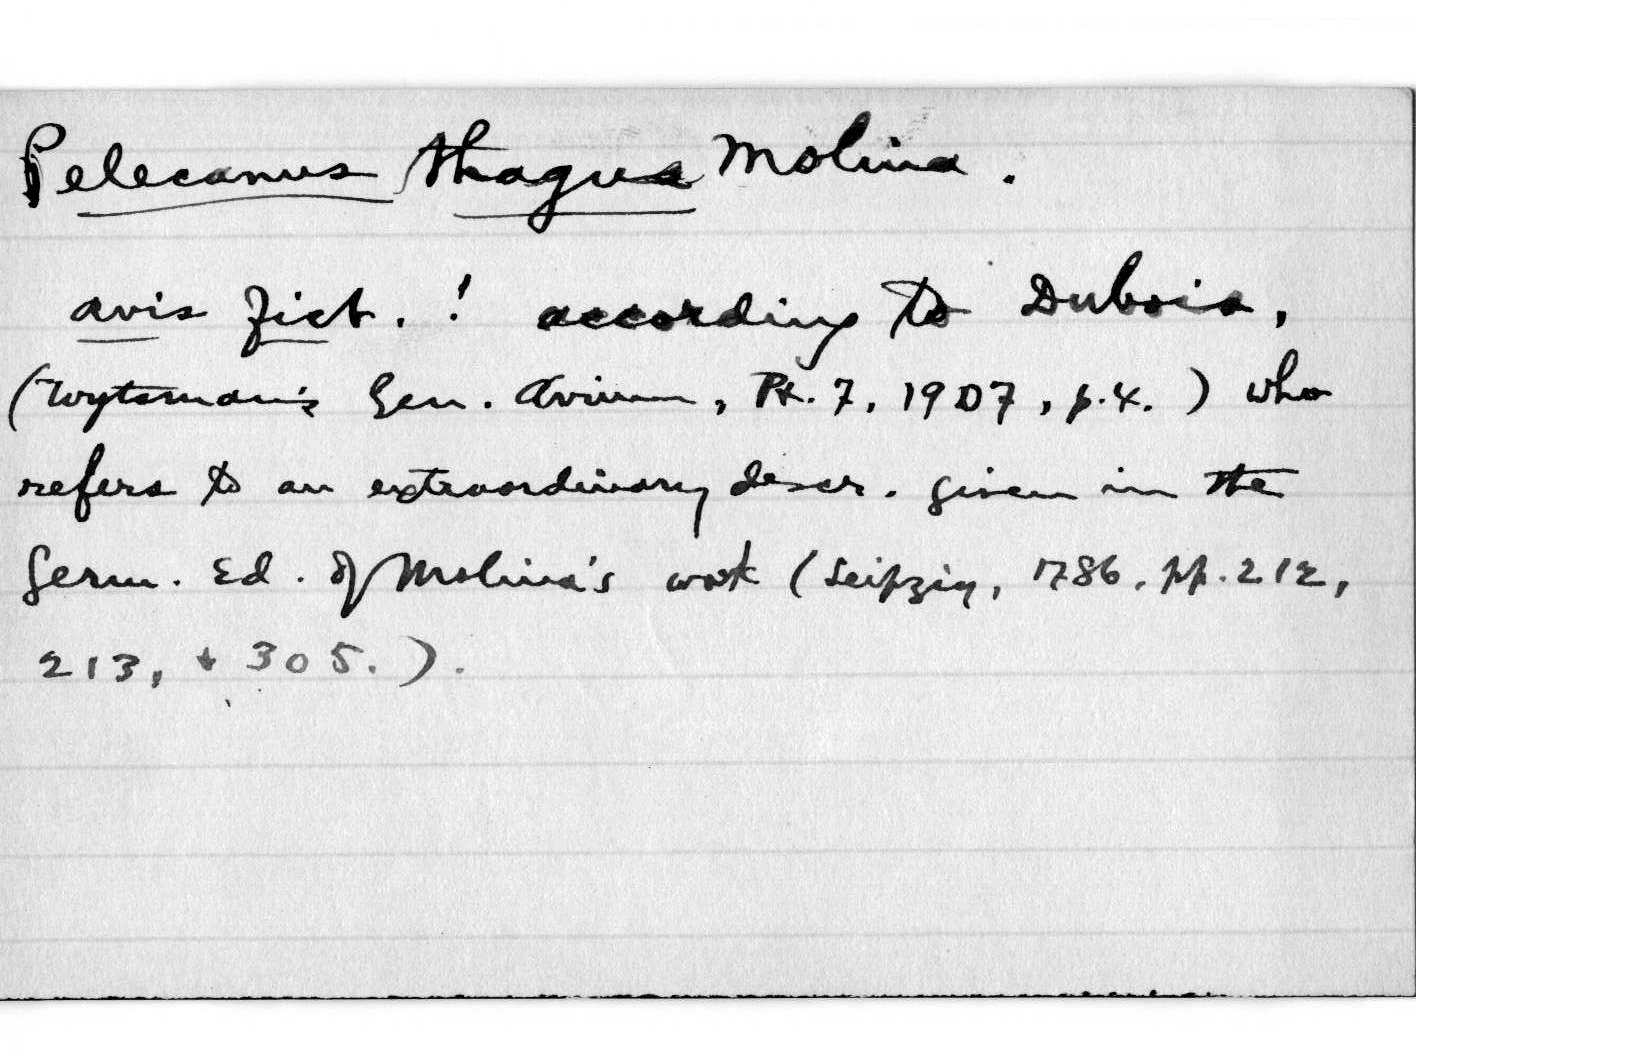 Pelecanus thagus Molina.
avis fict. ! according to Dubois,
(Wytsman's Gen. Avium, Pt. 7, 1907, p.4.) who
refers to an extraordinary descr. given in the
Germ. Ed. of Molina's work (Leipzig, 1786, pp. 212,
213, + 305.).